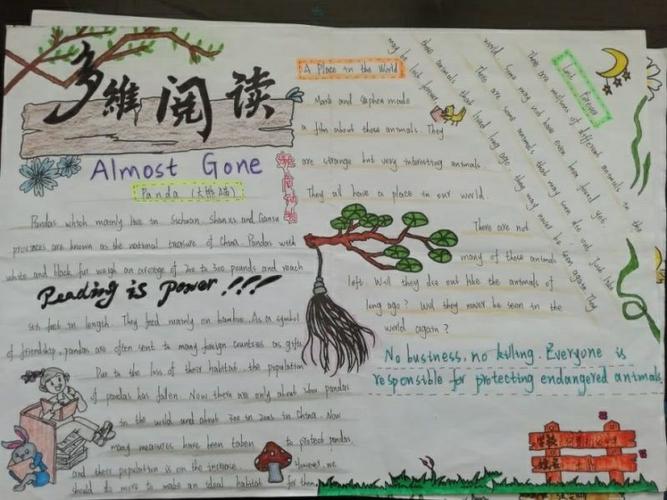 多維閱读
Almost Gone
Panda (大熊猫)
Pandas which mainly live in Sichuan, Shanxi and Gansu
provinces are known as the national treasure of China. Pandas with
white and black fur weigh an average of 200 to 300 pounds and reach
Reading is Power!!!
six feet in length. They feed mainly on bamboo. As a symbol
of friendship, pandas are often sent to many foreign countries as gifts.
Due to the loss of their habitat, the population
of pandas has fallen. Now there are only about pandas
in the world and about in in China. Now
many measures have been taken to protect pandas
and their population is on the increase. However, we
should to more to make an ideal habitat for them.
A Place in the World
Mark and Sophea made
a film about these animals. They
are strange but very interesting animals
They all have a place in our world.
There are not
many of these animals
left. Will they die out like the animals of
long ago? Will they never be seen in the
world again?
Lost Forever
There are millions of different animals in the
world. Some may not have even been found yet.
There are some animals that may soon die out. Just like
those animals that lived long ago, they may never be seen again. They
may be lost forever.
No business, no killing. Everyone is
responsible for protecting endangered animals.
学校
姓名